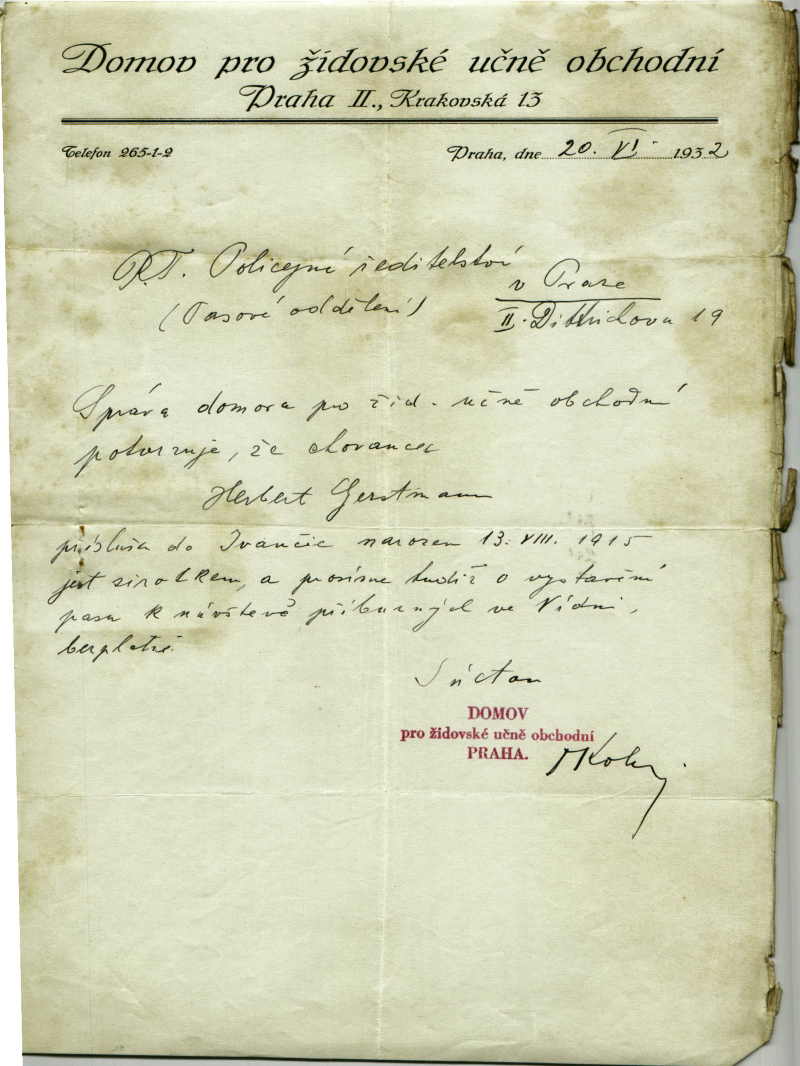 Domov pro židovské učně obchodní
Praha II., Krakovská 13
Telefon 265-1-2
Praha, dne 20. VI. 1932
P.T. Policejní ředitelství
v Praze
(Pasové oddělení)
II. Dittrichova 19
Správa domova pro žid. učně obchodní
potvrzuje, že chovanec
Herbert Gerstmann
přísluší do Ivančic narozen 13. VIII. 1915
jest sirotkem, a prosíme tudíž o vystavění
pasu k návštevě příbuzných ve Vídni,
bezplatně.
S úctou
DOMOV
pro židovské učně obchodní
PRAHA.